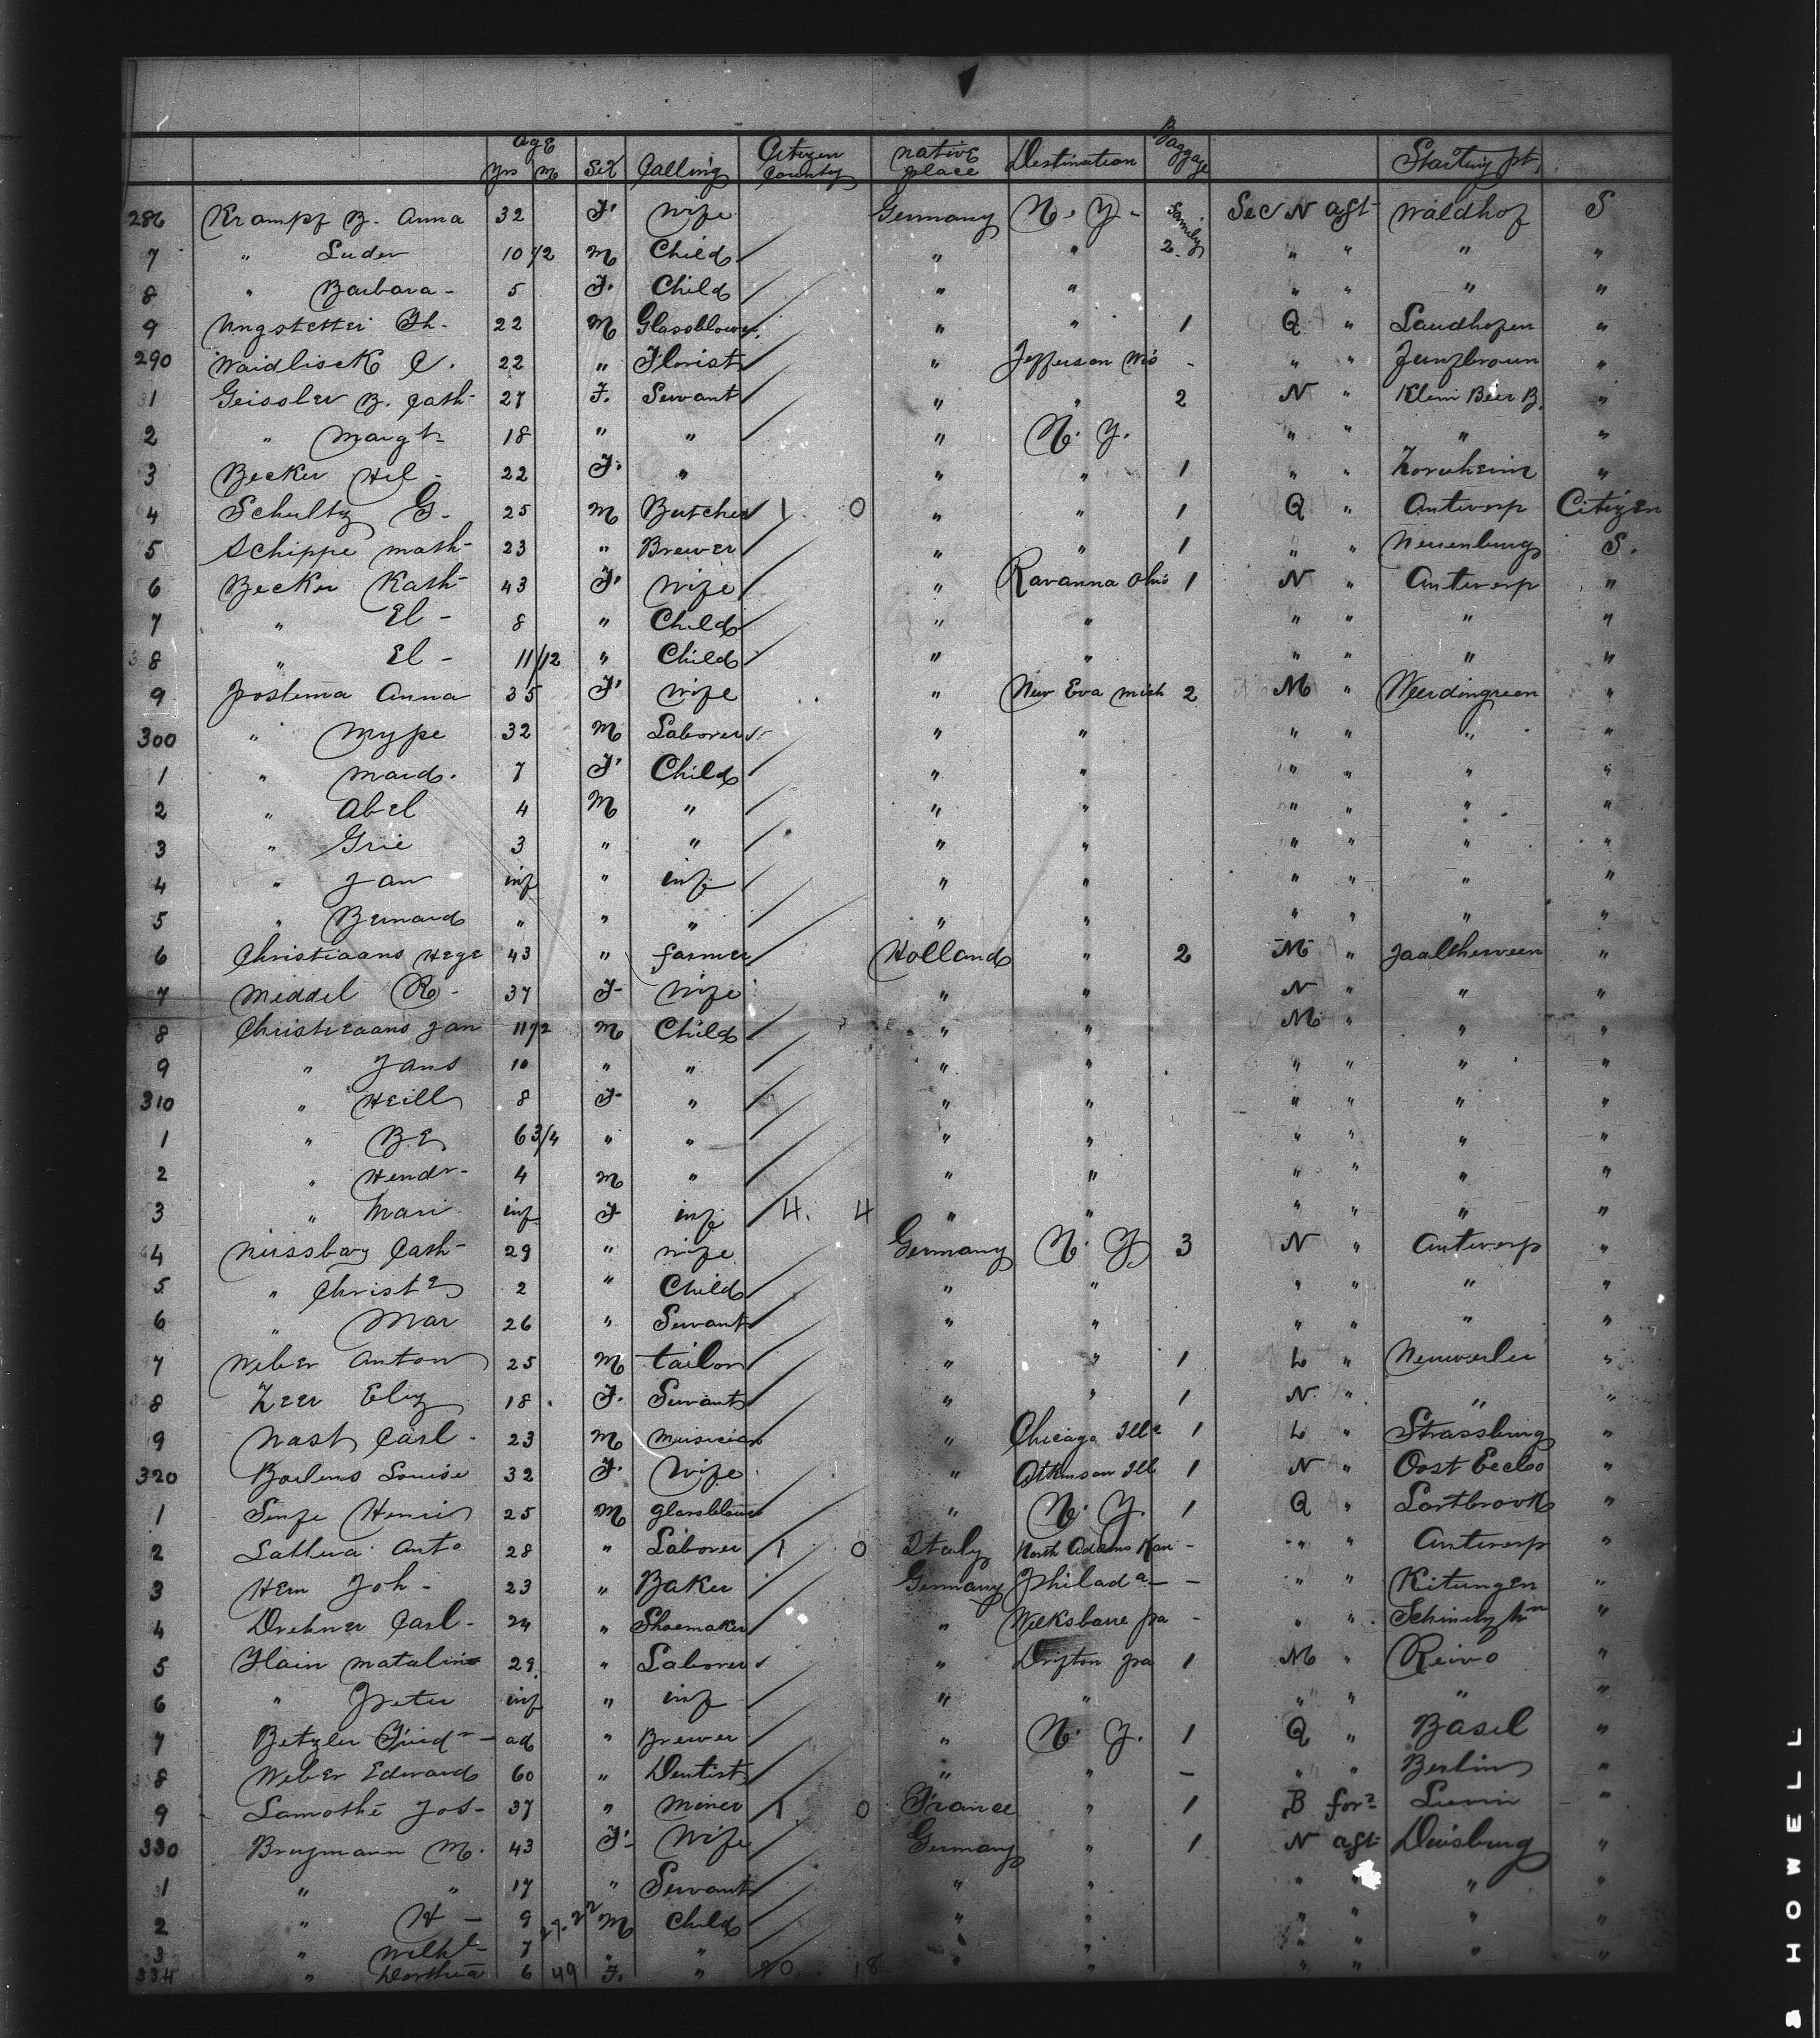 Age Baggage
Yrs M Sex Calling Citizen County Native place Destination Starting pt,
286 Krampf B. Anna 32 F. Wife Germany N. Y. Family Sec N aft Waldhof S
7 " Luder 10 1/2 M Child " " 2 " " " "
8 " Barbara - 5 F. Child " " " " " "
9 Ungstetter Th. 22 M Glassblower " " 1 Q " Sandhofen "
290 Waidlisck C. 22 " Florist " Jefferson Wis - " " "
1 Geissler B. Cath- 27 F. Servant " " 2 N " Klein Beer B. "
2 " Margt- 18 " " " N. Y. " " " "
3 Becker Hel - 22 F. " " " 1 " " Zornheim "
4 Schultz G. 25 M Butcher 1 0 " " 1 Q " Antwerp Citizen
5 Schippe Math- 23 " Brewer " " 1 " " Neuenburg S.
6 Becker Kath- 43 F. Wife " Ravanna Ohio 1 N " Antwerp "
7 " El - 8 " Child " " " " " "
8 " El - 11/12 " Child " " " " " "
9 Postema Anna 35 F. Wife " New Era Mich 2 M " Weerdingreen "
300 " Mype 32 M Laborer " " " " " "
1 " Mard. 7 F. Child " " " " " "
2 " Abel 4 M " " " " " " "
3 " Grie 3 " " " " " " " "
4 " Jan inf " inf " " " " " "
5 " Bernard " " " " " " " " "
6 Christiaans Hege 43 " farmer Holland " 2 M " Jaaltherveen "
7 Meddel R. 37 F- Wife " " N " " "
8 Christiaans Jan 11 1/2 M Child " " M " " "
9 " Jans 10 " " " " " " " "
310 " Heill 8 F- " " " " " " "
1 " B.E 6 3/4 " " " " " " " "
2 " Hendr- 4 M " " " " " " "
3 " Mari inf F inf 4. 4 " " " " " "
4 Nussbay Cath- 29 " wife Germany N. Y 3 N " Antwerp "
5 " Christe 2 " Child " " " " " "
6 " Mar 26 " Servant " " " " " "
7 Weber Anton 25 M tailor " " 1 L " Neuweiler "
8 Zeer Eliz 18. F. Servant " " 1 N " " "
9 Nast Carl - 23 M Musician " Chicago Ills 1 L " Strassburg "
320 Baelens Louise 32 F. Wife " Atkinson Ill 1 N " Oost Eecloo "
1 Senfe Henri 25 M glassblower " N. Y 1 Q " Lortbrook "
2 Anto 28 " Laborer 1 0 Italy North Adams - " " Antwerp "
3 Hem Joh - 23 " Baker Germany Philada - - " " Kitungen "
4 Drehner Carl - 24 " Shoemaker " Wilksbarre Pa - " " "
5 Hain Matalino 29 " Laborer " Drifton Pa 1 M " Reivo "
6 " Peter inf " inf " " " " " "
7 Betzler Frid - ad " Brewer " N. Y. 1 Q " Basel "
8 Weber Edward 60 " Dentist " " - " " Berlin "
9 Lamothe Jos- 37 " Miner 1 0 France " 1 B for " "
330 Brugmann M. 43 F- Wife Germany " 1 N aft Duisburg "
1 " " 17 " Servant " " " " " "
2 " H - 9 M Child " " " " " "
3 " Wilhl- 7 " " " " " " " "
334 " Dorthea 6 49 F. " 20 18 " " " " " "
B HOWELL